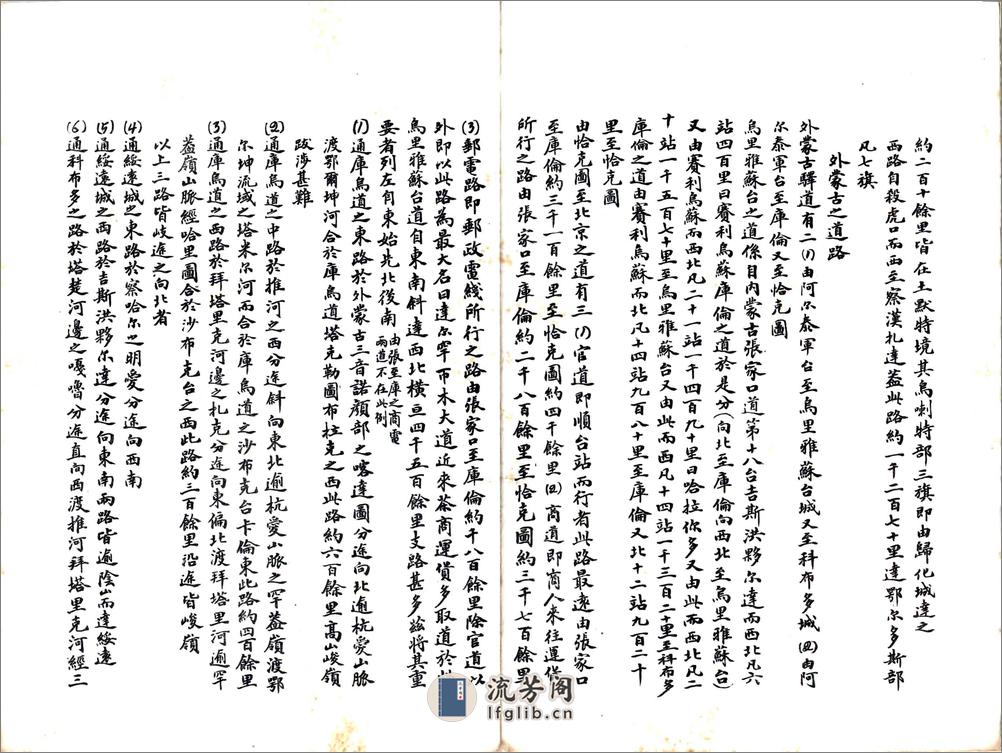 約二百十餘里皆在土默特境其烏喇特部三旗即由歸化城達之
西路自殺虎口而西至察漢札達蓋此路約一千二百七十里達鄂尔多斯部
凡七旗
外蒙古之道路
外蒙古驛道有二(1)由阿尔泰軍台至烏里雅蘇台城又至科布多城(2)由阿
尔泰軍台至庫倫又至恰克圖
烏里雅蘇台之道係自內蒙古張家口道第十八台吉斯洪夥尔達而西北凡六
站四百里曰賽利烏蘇庫倫之道於是分(向北至庫倫向西北至烏里雅蘇台)
又由賽利烏蘇而西北凡二十一站一千四百九十里曰哈拉你多又由此而西北凡二
十站一千五百七十里至烏里雅蘇台又由此而西凡十四站一千三百二十里至科布多
庫倫之道由賽利烏蘇而北凡十四站九百八十里至庫倫又北十二站九百二十
里至恰克圖
由恰克圖至北京之道有三(1)官道即順台站而行者此路最遠由張家口
至庫倫約三千一百餘里至恰克圖約四千餘里(2)商道即商人來往運貨
所行之路由張家口至庫倫約二千八百餘里至恰克圖約三千七百餘里
(3)郵電路即郵政電綫所行之路由張家口至庫倫約千八百餘里除官道以
外即以此路為最大名曰達尔罕而木大道近來茶商運貨多取道於此
烏里雅蘇台道自東南斜達西北橫亘四千五百餘里支路甚多茲將其重
要者列左自東始先北後南由張至庫之商電兩道不在此例
(1)通庫烏道之東路於外蒙古三音諾顏部之喀達圖分途向北逾杭愛山脈
渡鄂爾坤河合於庫烏道塔克勒圖布拉克之西此路約六百餘里高山峻嶺
跋涉甚難
(2)通庫烏道之中路於推河之西分途斜向東北逾杭愛山脈之罕蓋嶺渡鄂
尔坤流域之塔米尔河而合於庫烏道之沙布克台卡倫東此路約四百餘里
(3)通庫烏道之西路於拜塔里克河邊之札克分途向東偏北渡拜塔里河逾罕
蓋嶺山脈經哈里圖合於沙布克台之西此路約三百餘里沿途皆峻嶺
以上三路皆岐途之向北者
(4)通綏遠城之東路於察哈尔之明愛分途向西南
(5)通綏遠城之西路於吉斯洪夥尔達分途向東南兩路皆逾陰山而達綏遠
(6)通科布多之路於塔楚河邊之嘎嚕分途直向西渡推河拜塔里克河經三
流芳阁
lfglib.cn